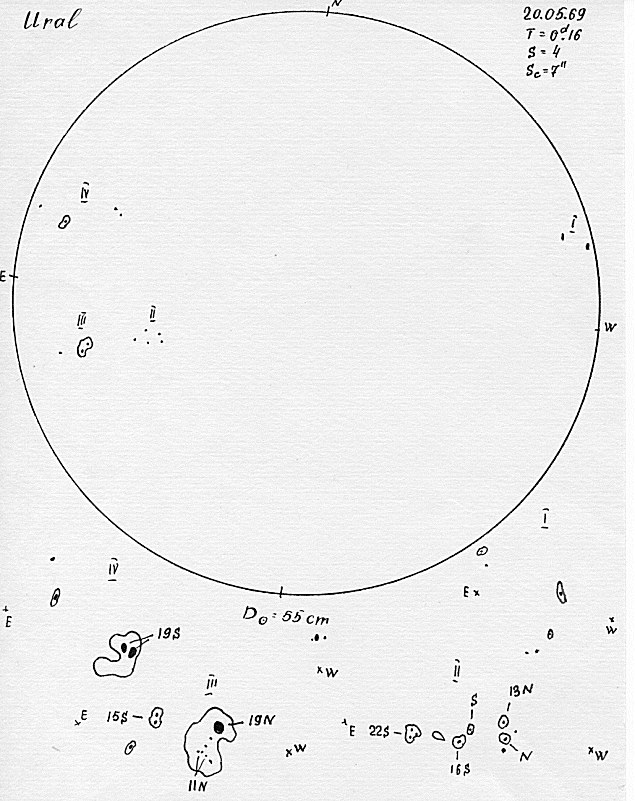 Ural
N
20.05.69
T = 0ᵈ.16
S = 4
Sc = 7"
IV
I
E
III
II
W
I
IV
E
E
D⊙ = 55 cm
W
19S
W
II
III
13N
S
E
15S
19N
E
22S
W
16S
N
W
11N